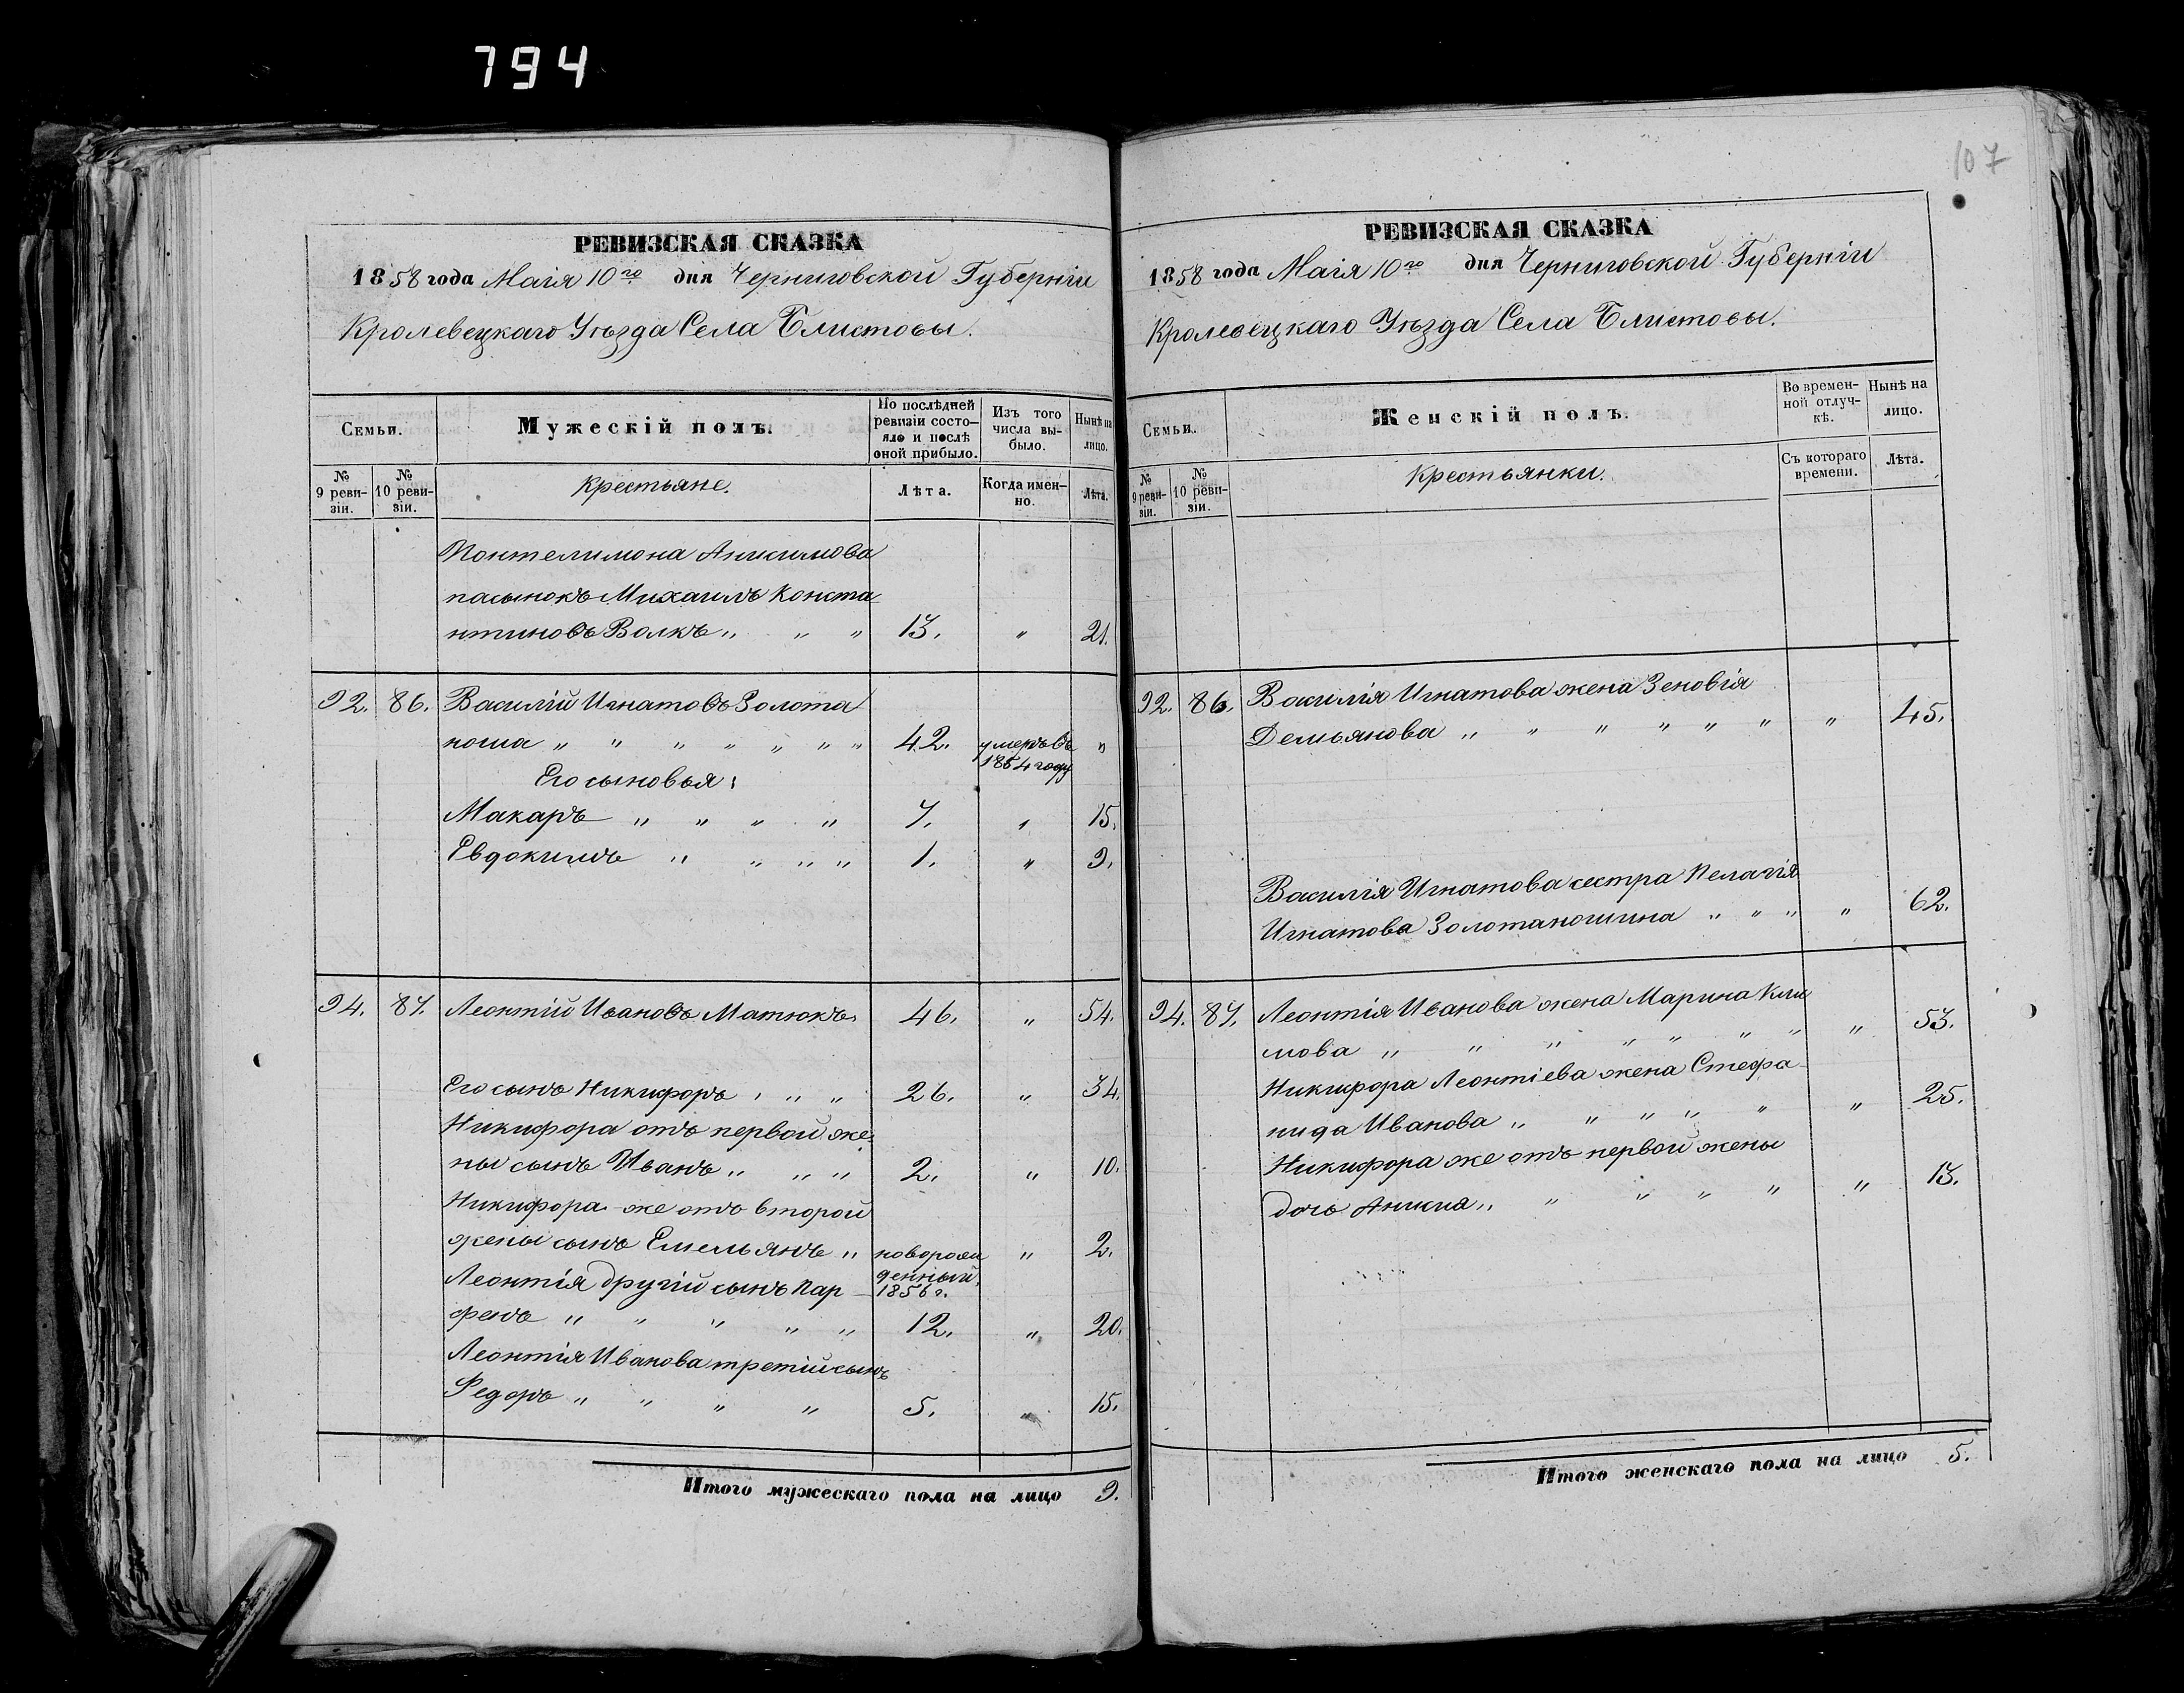 794
107
РЕВИЗСКАЯ СКАЗКА
1858 года Маія 10го дня Черниговской Губерніи
Кролевецкаго Уѣзда Села Блистовы.
Семьи.
Мужескій полъ.
По послѣдней ревизіи состояло и послѣ оной прибыло.
Изъ того числа выбыло.
Нынѣ на лицо.
№ 9 ревизіи.
№ 10 ревизіи.
Крестьяне.
Лѣта.
Когда именно.
Лѣта.
Понтелимона Анкимова
пасынокъ Михаилъ Конста
нтиновъ Волкъ „ „ „ 13. „ 21.
92. 86. Василій Игнатовъ Золота
ноша „ „ „ „ „ „ „ 42. умеръ въ 1854 году „
Его сыновья:
Макаръ „ „ „ „ 7. „ 15.
Евдокимъ „ „ „ „ 1. „ 9.
94. 87. Леонтій Ивановъ Матюкъ 46. „ 54.
Его сынъ Никифоръ „ „ „ 26. „ 34.
Никифора отъ первой же
ны сынъ Иванъ „ „ „ 2. „ 10.
Никифора же отъ второй
жены сынъ Емельянъ „ новорожденный 1856 г. „ 2.
Леонтія другій сынъ Пар
фенъ „ „ „ „ „ 12. „ 20.
Леонтія Иванова третій сынъ
Федоръ „ „ „ „ 5. „ 15.
Итого мужескаго пола на лицо 9.
РЕВИЗСКАЯ СКАЗКА
1858 года Маія 10го дня Черниговской Губерніи
Кролевецкаго Уѣзда Села Блистовы.
Семьи.
Женскій полъ.
Во временной отлучкѣ.
Нынѣ на лицо.
№ 9 ревизіи.
№ 10 ревизіи.
Крестьянки.
Съ котораго времени.
Лѣта.
92. 86. Василія Игнатова жена Зеновія
Демьянова „ „ „ „ „ „ „ 45.
Василія Игнатова сестра Пелагія
Игнатова Золотаношина „ „ „ „ 62.
94. 87. Леонтія Иванова жена Марина Кли
мова „ „ „ „ „ „ „ „ 53.
Никифора Леонтіева жена Стефа-
нида Иванова „ „ „ „ „ „ 25.
Никифора же отъ первой жены
дочь Анисия „ „ „ „ „ „ 13.
Итого женскаго пола на лицо 5.